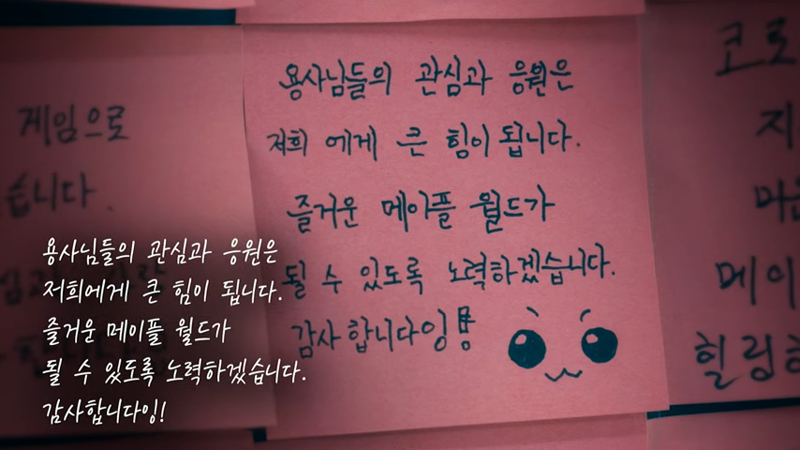 게임으로
습니다.
용사님들의 관심과 응원은
저희 에게 큰 힘이 됩니다.
즐거운 메이플 월드가
될 수 있도록 노력하겠습니다.
감사합니다잉!
코로
지
메이
힐링
용사님들의 관심과 응원은
저희에게 큰 힘이 됩니다.
즐거운 메이플 월드가
될 수 있도록 노력하겠습니다.
감사합니다잉!